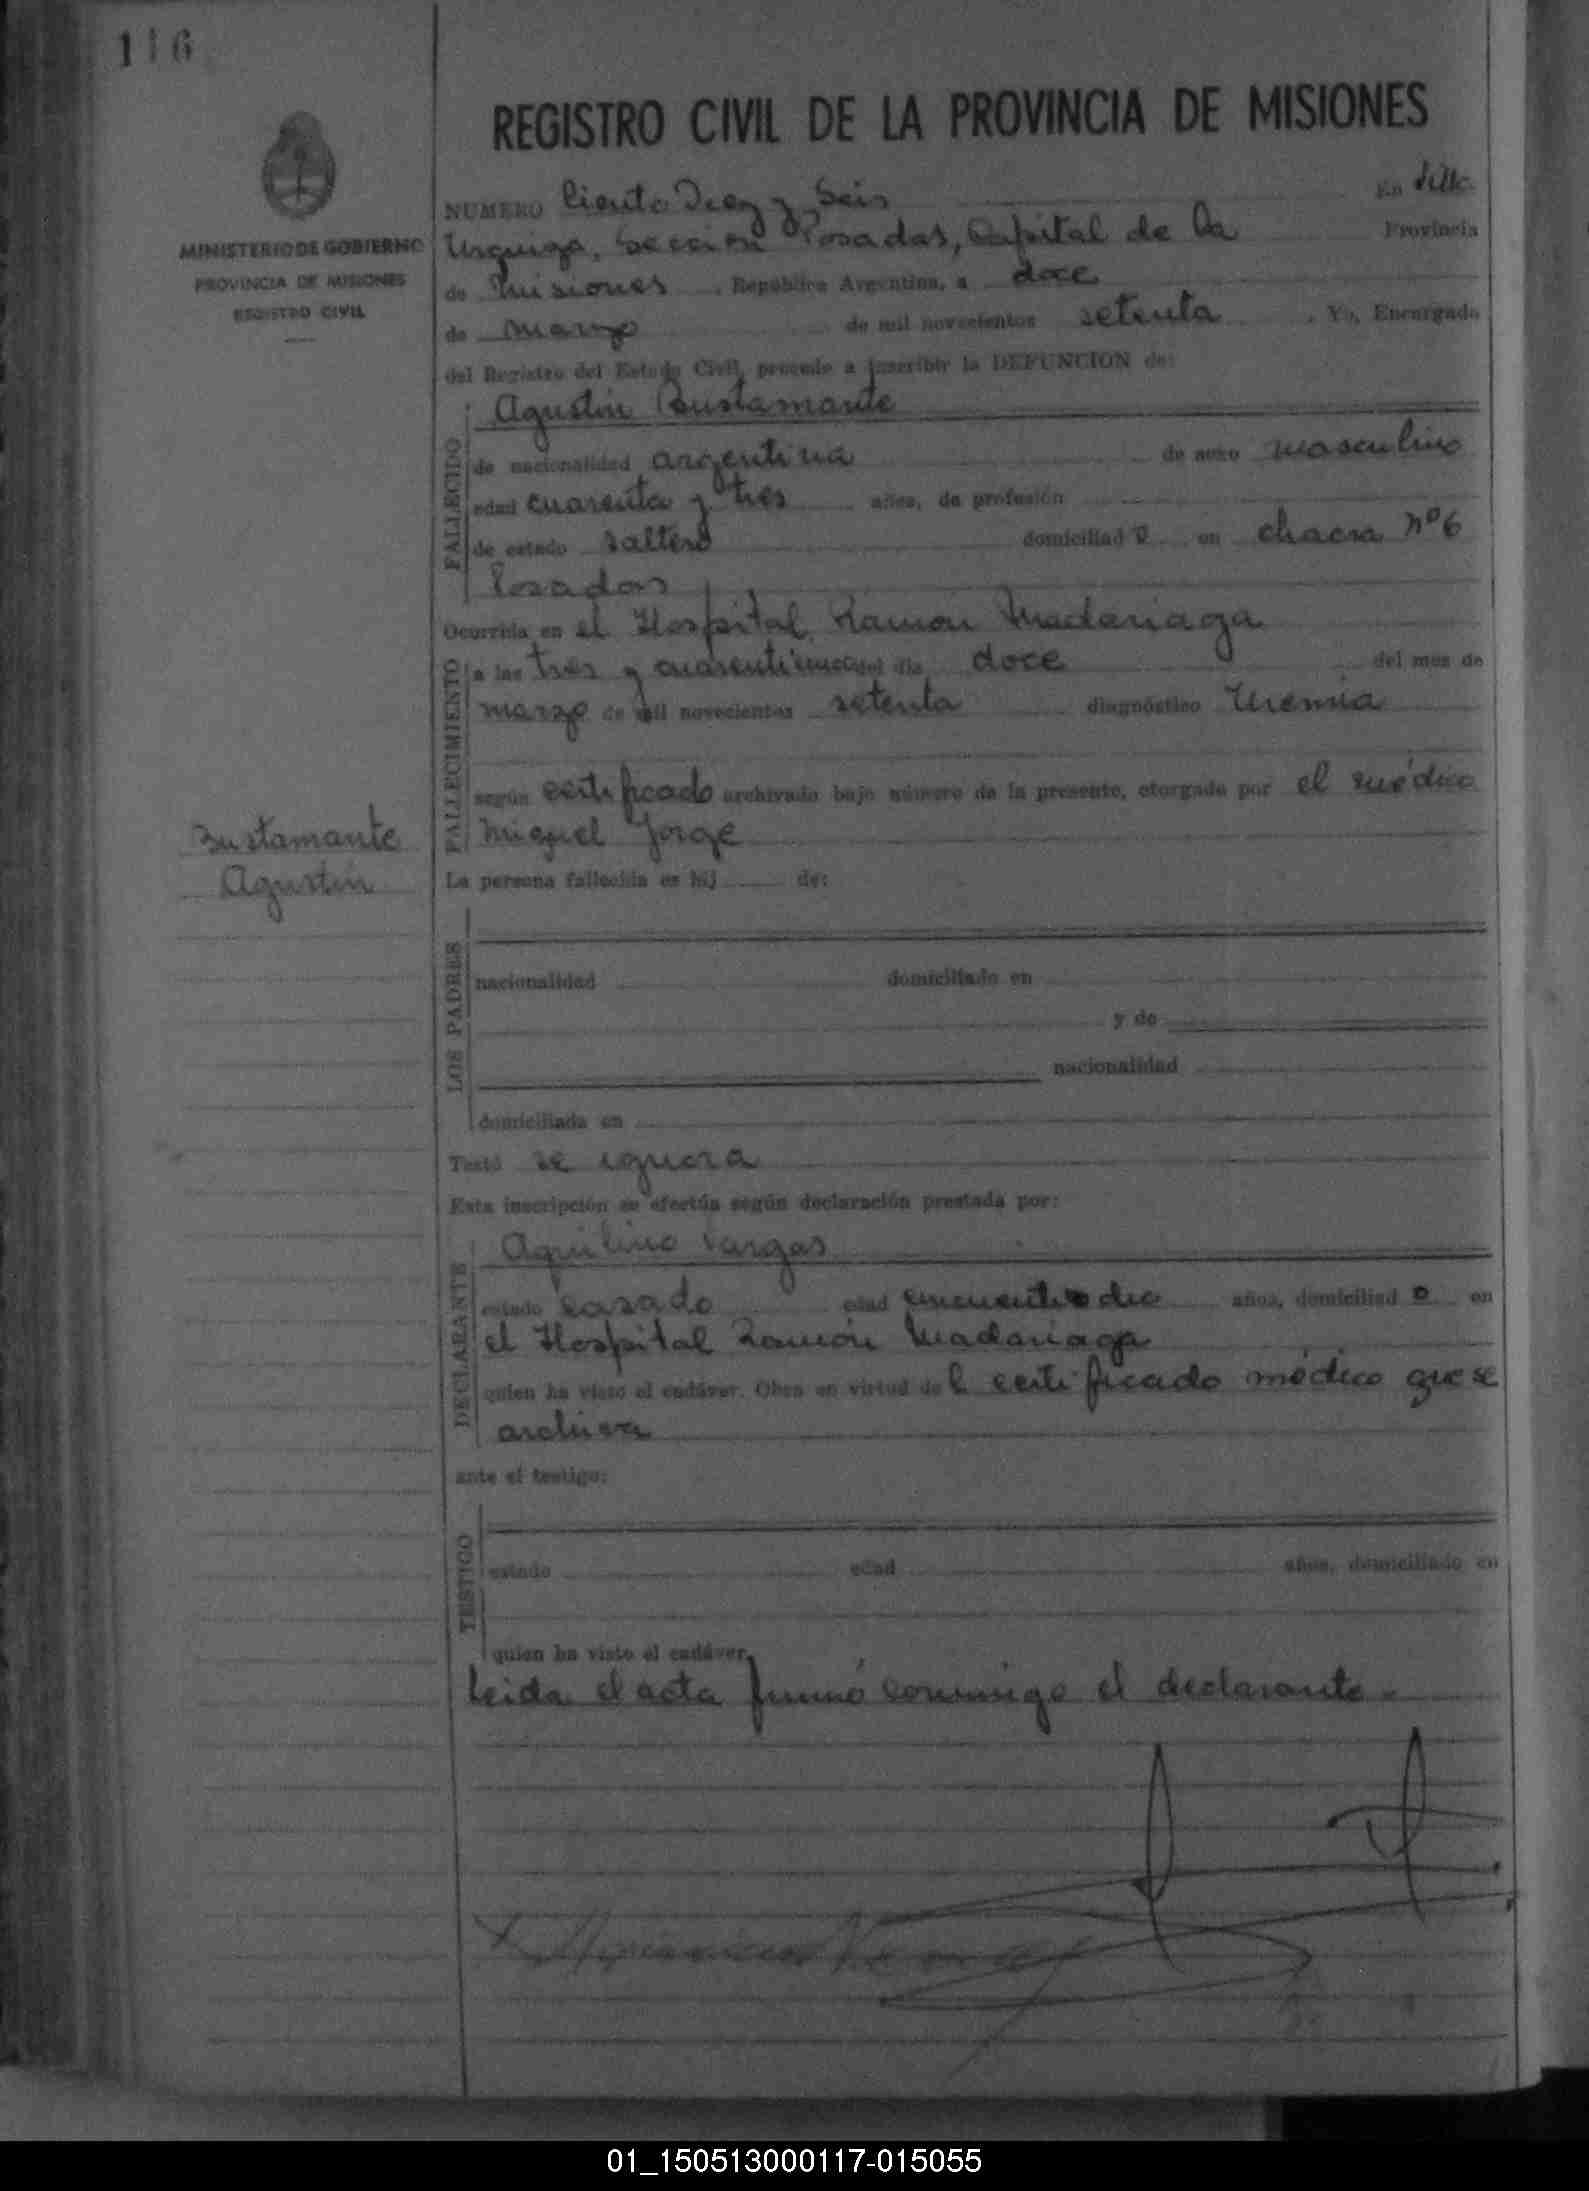 116
REGISTRO CIVIL DE LA PROVINCIA DE MISIONES
MINISTERIO DE GOBIERNO
PROVINCIA DE MISIONES
REGISTRO CIVIL
NUMERO Ciento Diez y Seis En Villa
Urquiza, Sección Posadas, Capital de la Provincia
de Misiones, República Argentina, a doce
de marzo de mil novecientos setenta. Yo, Encargado
del Registro del Estado Civil, procedo a inscribir la DEFUNCION de:
FALLECIDO
Agustín Bustamante
de nacionalidad argentina de sexo masculino
edad cuarenta y tres años, de profesión
de estado soltero domiciliado en chacra Nº6
Posadas
Ocurrida en el Hospital Ramón Madariaga
FALLECIMIENTO
a las tres y del día doce del mes de
marzo de mil novecientos setenta diagnóstico Uremia
según certificado archivado bajo número de la presente, otorgado por el médico
Miguel Jorge
Bustamante
Agustín
La persona fallecida es hij de:
LOS PADRES
nacionalidad domiciliado en
y de
nacionalidad
domiciliada en
Testó se ignora
Esta inscripción se efectúa según declaración prestada por:
DECLARANTE
Aquilino Vargas
estado casado edad años, domiciliado en
el Hospital Ramón Madariaga
quien ha visto el cadáver. Obra en virtud del certificado médico que se
archiva
ante el testigo:
TESTIGO
estado edad años, domiciliado en
quien ha visto el cadáver.
Leida el acta firmó conmigo el declarante.-
01_150513000117-015055